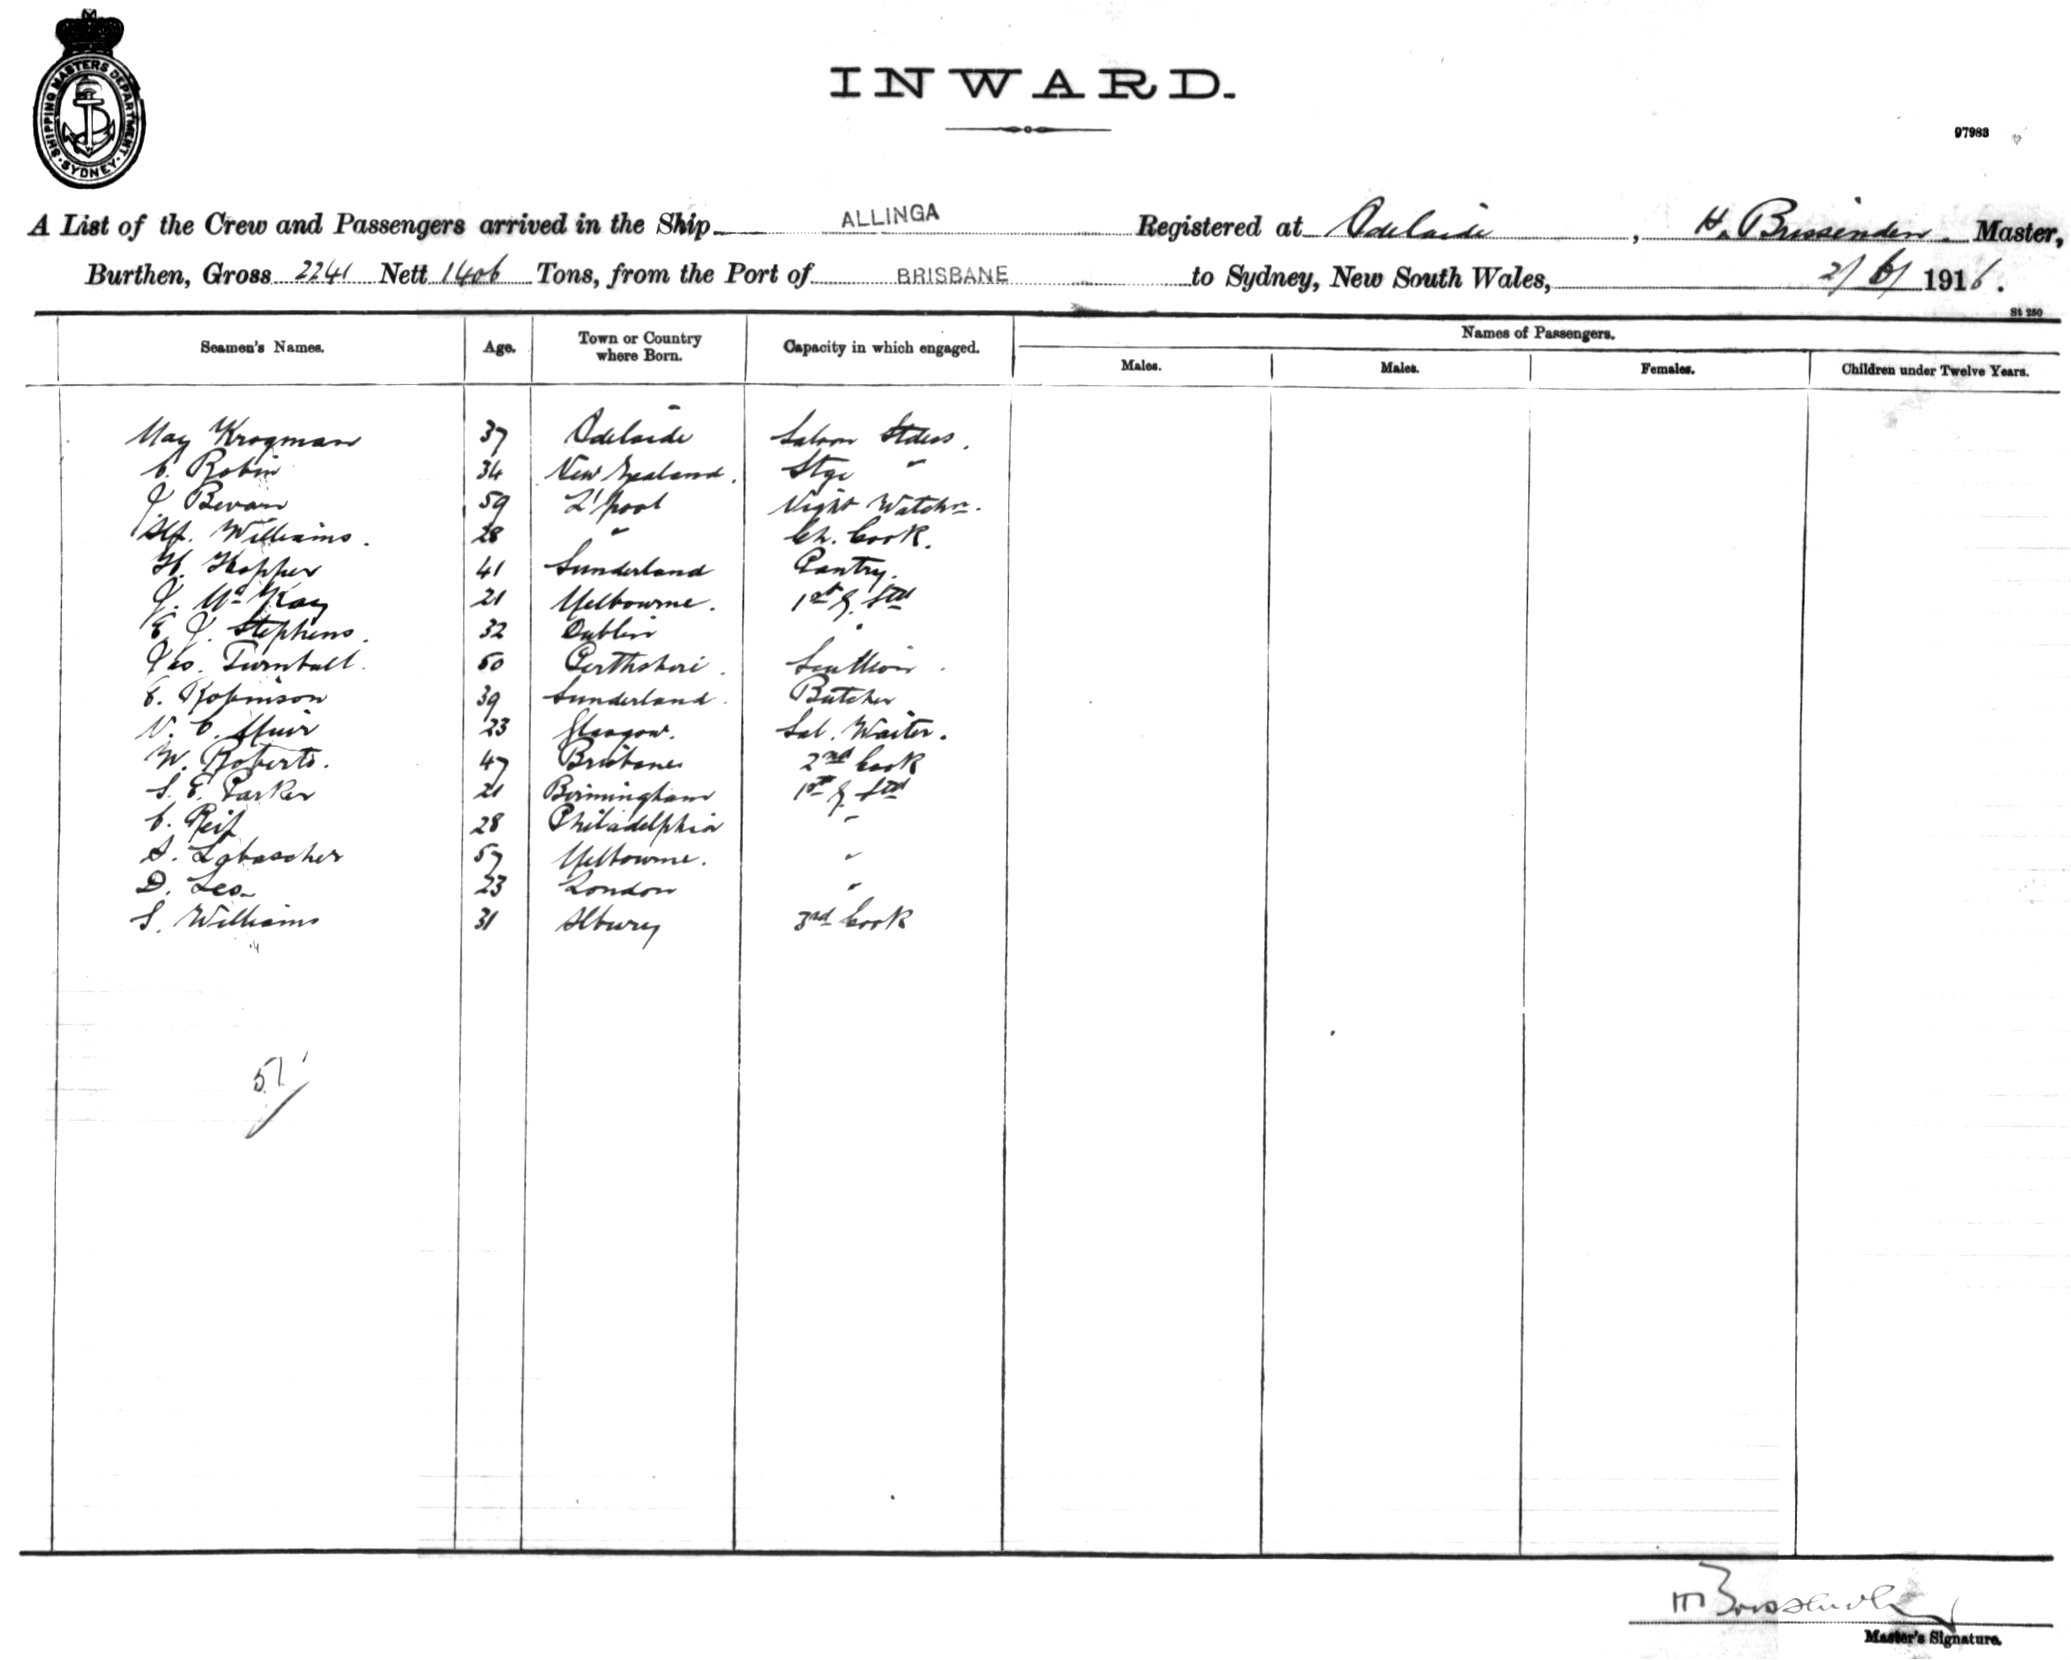 SHIPPING MASTERS DEPARTMENT · SYDNEY ·
INWARD.
97983
A List of the Crew and Passengers arrived in the Ship ALLINGA Registered at Adelaide, H. Brissenden. Master,
Burthen, Gross 2241 Nett 1406 Tons, from the Port of BRISBANE to Sydney, New South Wales, 2/6/1916.
St 250
Seamen's Names. Age. Town or Country where Born. Capacity in which engaged. Names of Passengers.
Males. Males. Females. Children under Twelve Years.
May Krogman 37 Adelaide Saloon Stdess.
C. Robin 34 New Zealand. Stge "
J Bevan 59 L'pool Night Watchn.
Alf. Williams. 28 " Ch. Cook.
H. Hopper 41 Sunderland Pantry.
J. McKay 21 Melbourne. 1st G. Std
E. J. Stephens. 32 Dublin "
Jas. Turnbull. 50 Perthshire. Scullion.
E. Robinson 39 Sunderland. Butcher
V. C. Muir 23 Glasgow. Sal. Waiter.
W. Roberts. 47 Brisbane 2nd Cook
S. E. Parker 21 Birmingham 1st G. Std
C. Reif 28 Philadelphia "
S. Labascher 57 Melbourne. "
D. Leo. 23 London "
S. Williams 31 Albury 3rd Cook
51
H Brissenden
Master's Signature.